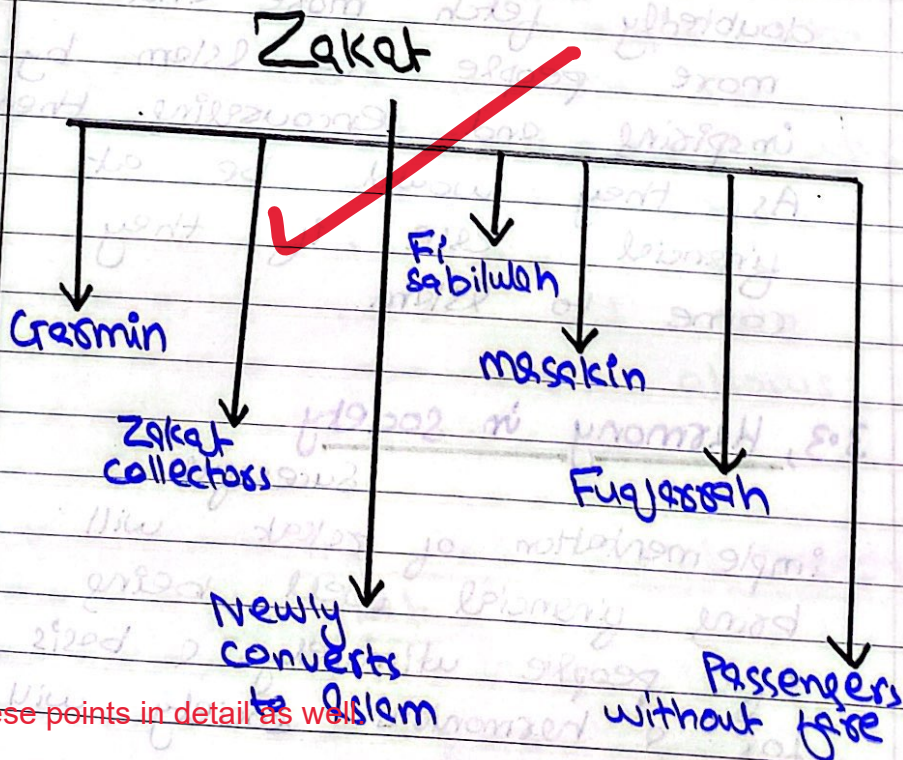 Zakat
Garmin
Zakat
collectors
Newly
converts
to Islam
Fi
sabilulah
masakin
Fuqarrah
Passengers
without fare
ese points in detail as well.